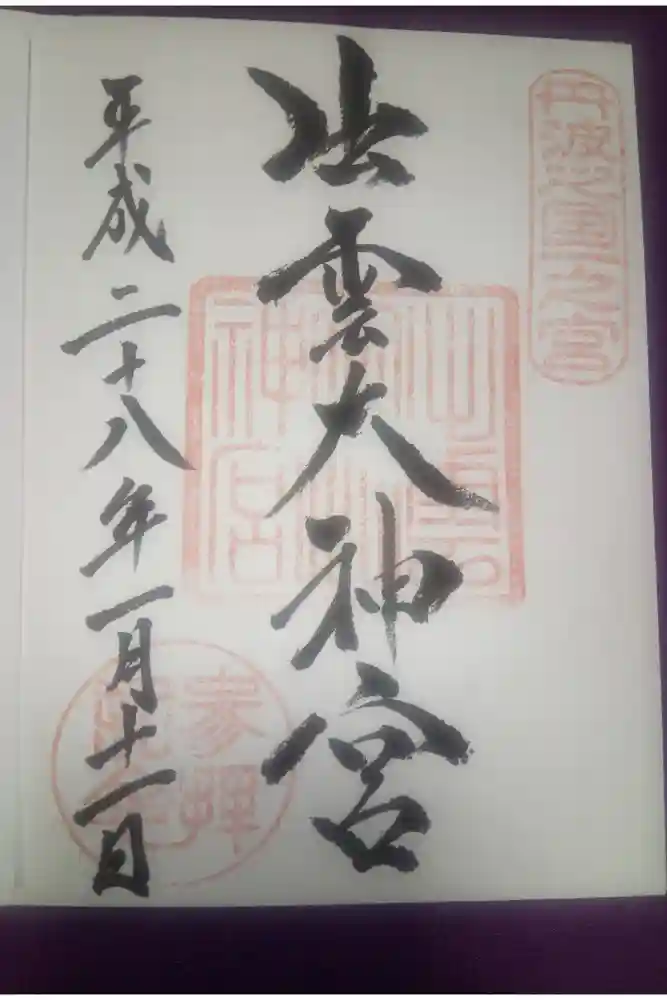 丹波之国一之宮
出雲大神宮
平成二十八年一月十一日
参拝